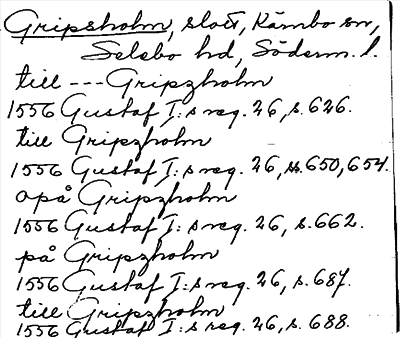 Gripsholm, slott, Kärnbo sn,
Selebo hd, Söderm. l.
till --- Gripzholm
1556 Gustaf I:s reg. 26, s. 626.
till Gripzholm
1556 Gustaf I:s reg. 26, ss. 650, 654.
opå Gripzholm
1556 Gustaf I:s reg. 26, s. 662.
på Gripzholm
1556 Gustaf I:s reg. 26, s. 687.
till Gripzholm
1556 Gustaf I:s reg. 26, s. 688.